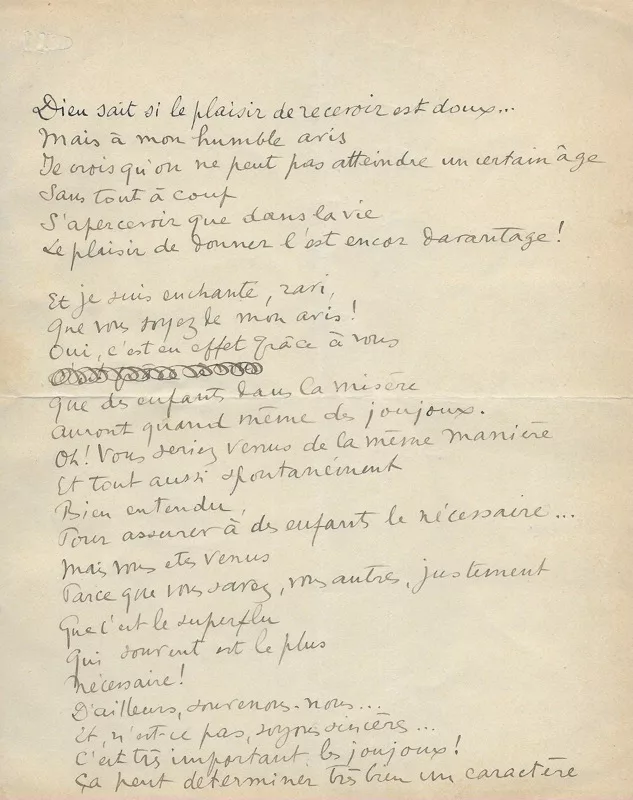 Dieu sait si le plaisir de recevoir est doux...
Mais à mon humble avis
Je crois qu'on ne peut pas atteindre un certain âge
Sans tout à coup
S'apercevoir que dans la vie
Le plaisir de donner l'est encor davantage!
Et je suis enchanté, ravi,
Que vous soyez de mon avis!
Oui, c'est en effet grâce à vous
que des enfants dans la misère
auront quand même des joujoux.
Oh! Vous seriez venus de la même manière
Et tout aussi spontanément
Bien entendu,
Pour assurer à des enfants le nécessaire...
Mais vous etes venus
Parce que vous savez, vous autres, justement
Que c'est le superflu
Qui souvent est le plus
nécessaire!
D'ailleurs, souvenons-nous...
Et, n'est-ce pas, soyons sincères...
C'est très important les joujoux!
Ça peut déterminer très bien un caractère